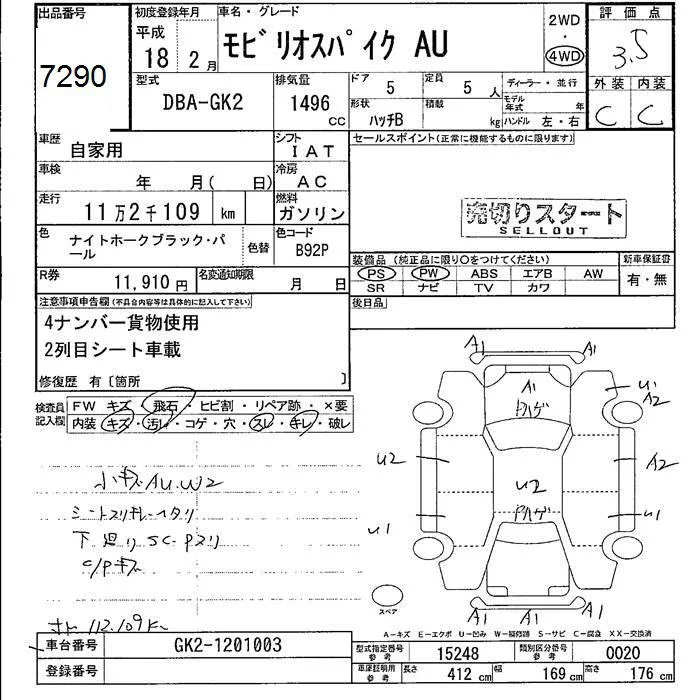 出品番号
7290
初度登録年月
平成
18年 2月
車名・グレード
モビリオスパイク AU
2WD
・
4WD
評価点
3.5
型式
DBA-GK2
排気量
1496
CC
ドア
5
定員
5 人
ディーラー・並行
形状
ハッチB
積載
kg
モデル年式 年
ハンドル 左・右
外装 内装
C C
車歴
自家用
シフト
IAT
セールスポイント(正常に機能するものに限ります)
車検
年 月( 日)
冷房
AC
走行
11万2千109 km
燃料
ガソリン
売切りスタート
SELLOUT
色
ナイトホークブラック・パール
色替
色コード
B92P
装備品 (純正品に限り○をつけてください)
PS PW ABS エアB AW
SR ナビ TV カワ
新車保証書
有・無
R券
11,910円
名変通知期限
月 日
後日品
注意事項申告欄(不具合内容等は具体的に記入して下さい)
4ナンバー貨物使用
2列目シート車載
修復歴 有〔箇所 〕
検査員記入欄
FW キズ・飛石・ヒビ割・リペア跡・×要
内装 キズ・汚レ・コゲ・穴・スレ・キレ・破レ
小キズAU.W2
シートスリキレ・ヘタリ
下廻りSC・Pスリ
C/Pキズ
112.109K
A1 A1
A1
トハゲ
U1
A2
U2
U2
A2
トハゲ
U1
U1
スペア
A1 A1 A1
A-キズ E-エクボ U-凹み W-補修跡 S-サビ C-腐食 XX-交換済
車台番号
GK2-1201003
登録番号
型式指定番号
参考
15248
類別区分番号
参考
0020
車庫証明用
参考
長さ
412 cm
幅
169 cm
高さ
176 cm